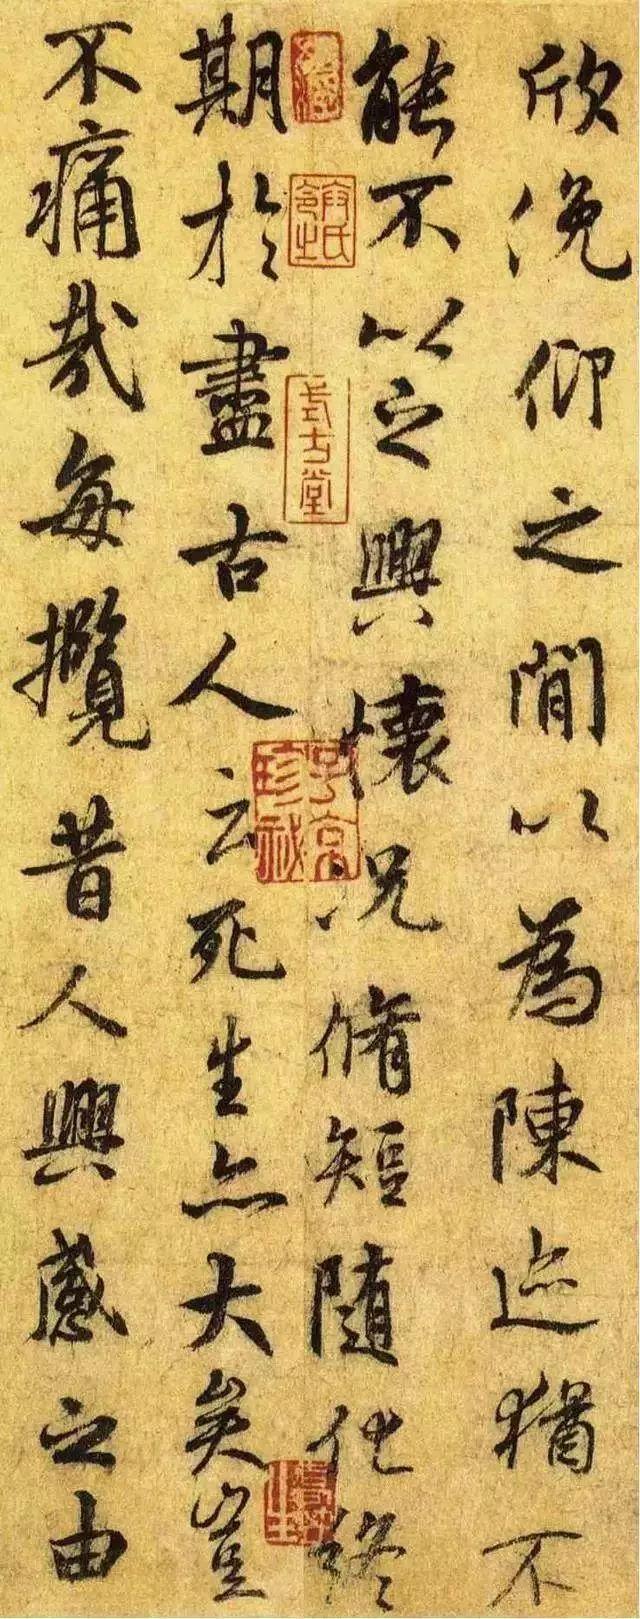 欣俛仰之間以為陳迹猶不
能不以之興懷況脩短隨化終
期於盡古人云死生亦大矣豈
不痛哉每攬昔人興感之由
子京
珍祕